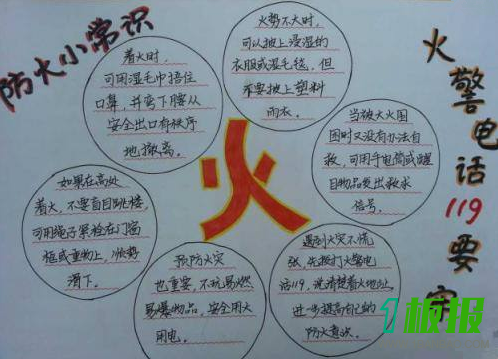 防火小常识
着火时，
可用湿毛巾捂住
口鼻，并弯下腰从
安全出口有秩序
地撤离。
火势不大时，
可以披上浸湿的
衣服或湿毛毯，但
不要披上塑料
雨衣。
当被大火围
困时又没有办法自
救，可用手电筒或醒
目物品发出求救
信号。
如果在高处
着火，不要盲目跳楼，
可用绳子紧拴在门窗
框或重物上，顺势
滑下。
预防火灾
也重要，不玩易燃
易爆物品，安全用火
用电。
遇到火灾不慌
张，先拨打火警电
话119，说清楚着火地址，
进一步提高自己的
防火意识。
火
火警电话119要
1板报